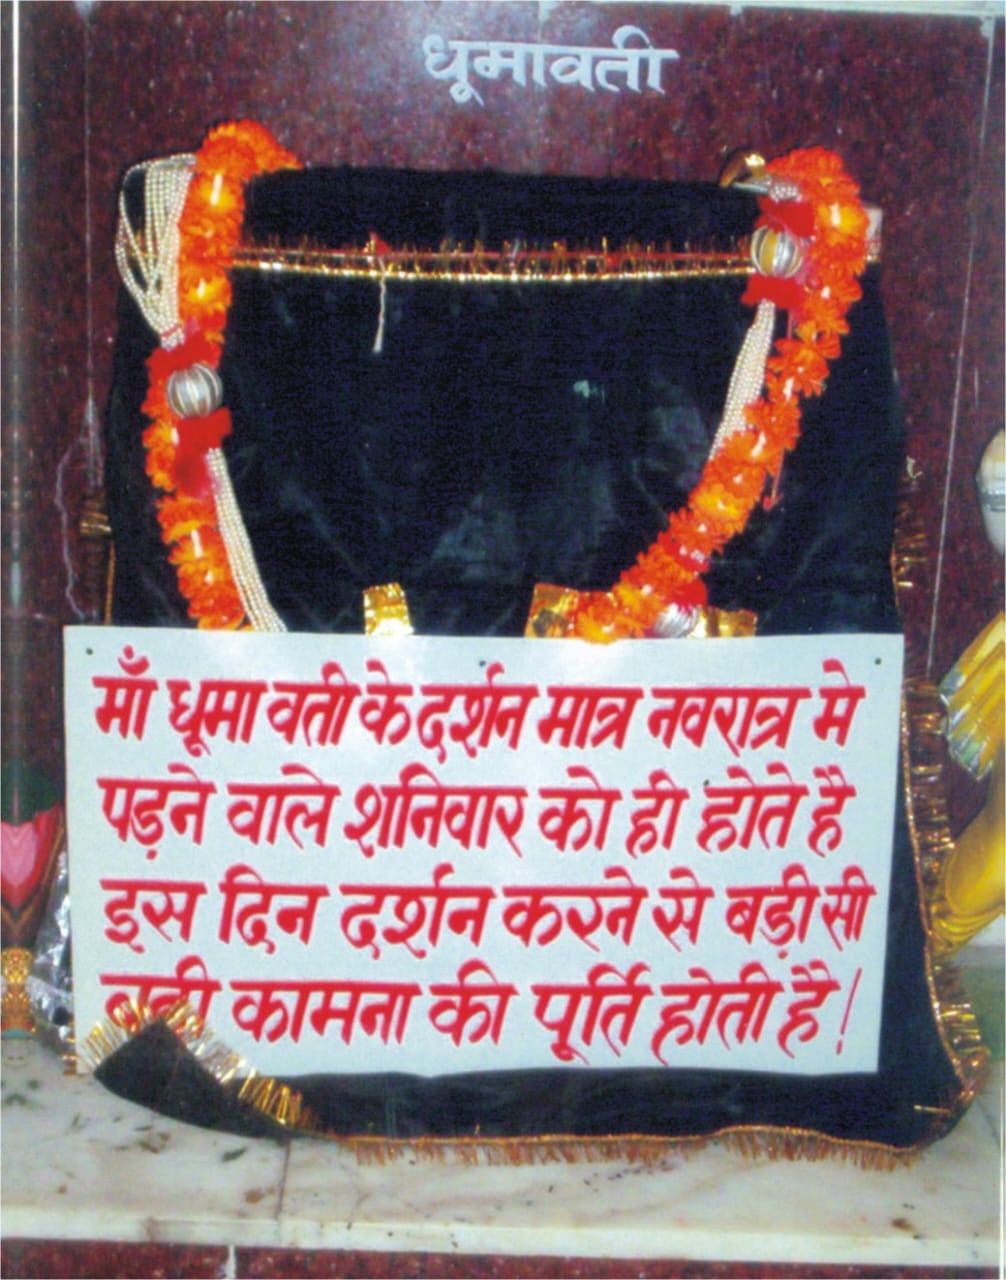 धूमावती
माँ धूमा वती के दर्शन मात्र नवरात्र मे
पड़ने वाले शनिवार को ही होते है
इस दिन दर्शन करने से बड़ी सी
बड़ी कामना की पूर्ति होती है!